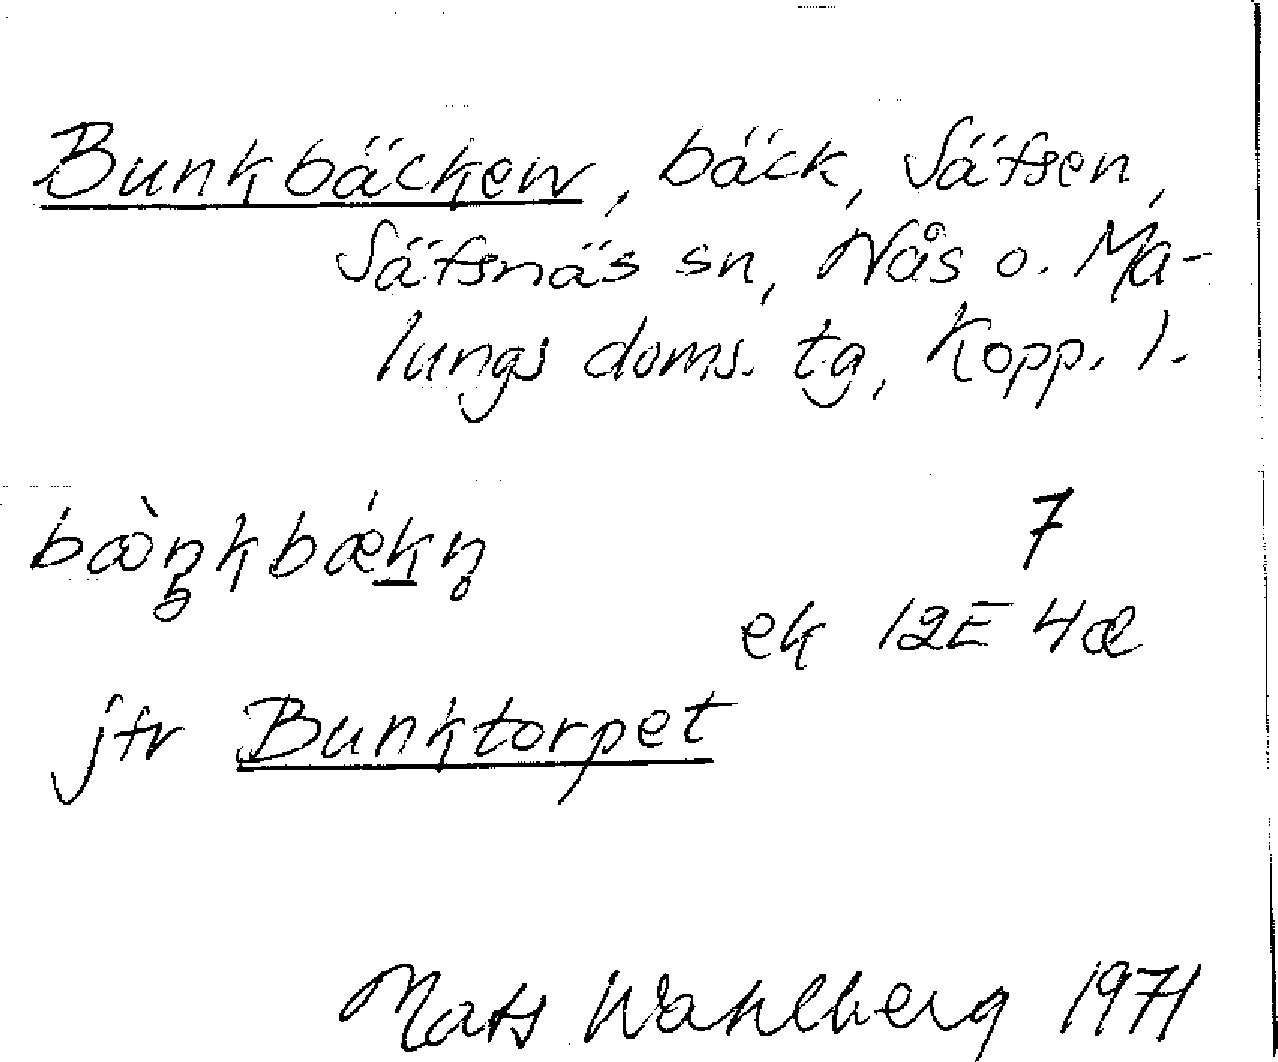 Bunkbäcken, bäck, Säfsen,
Säfsnäs sn, Nås o. Ma-
lungs doms. tg, Kopp. l.
7
ek 12E 4æ
jfr Bunktorpet
Mats Wahlberg 1971